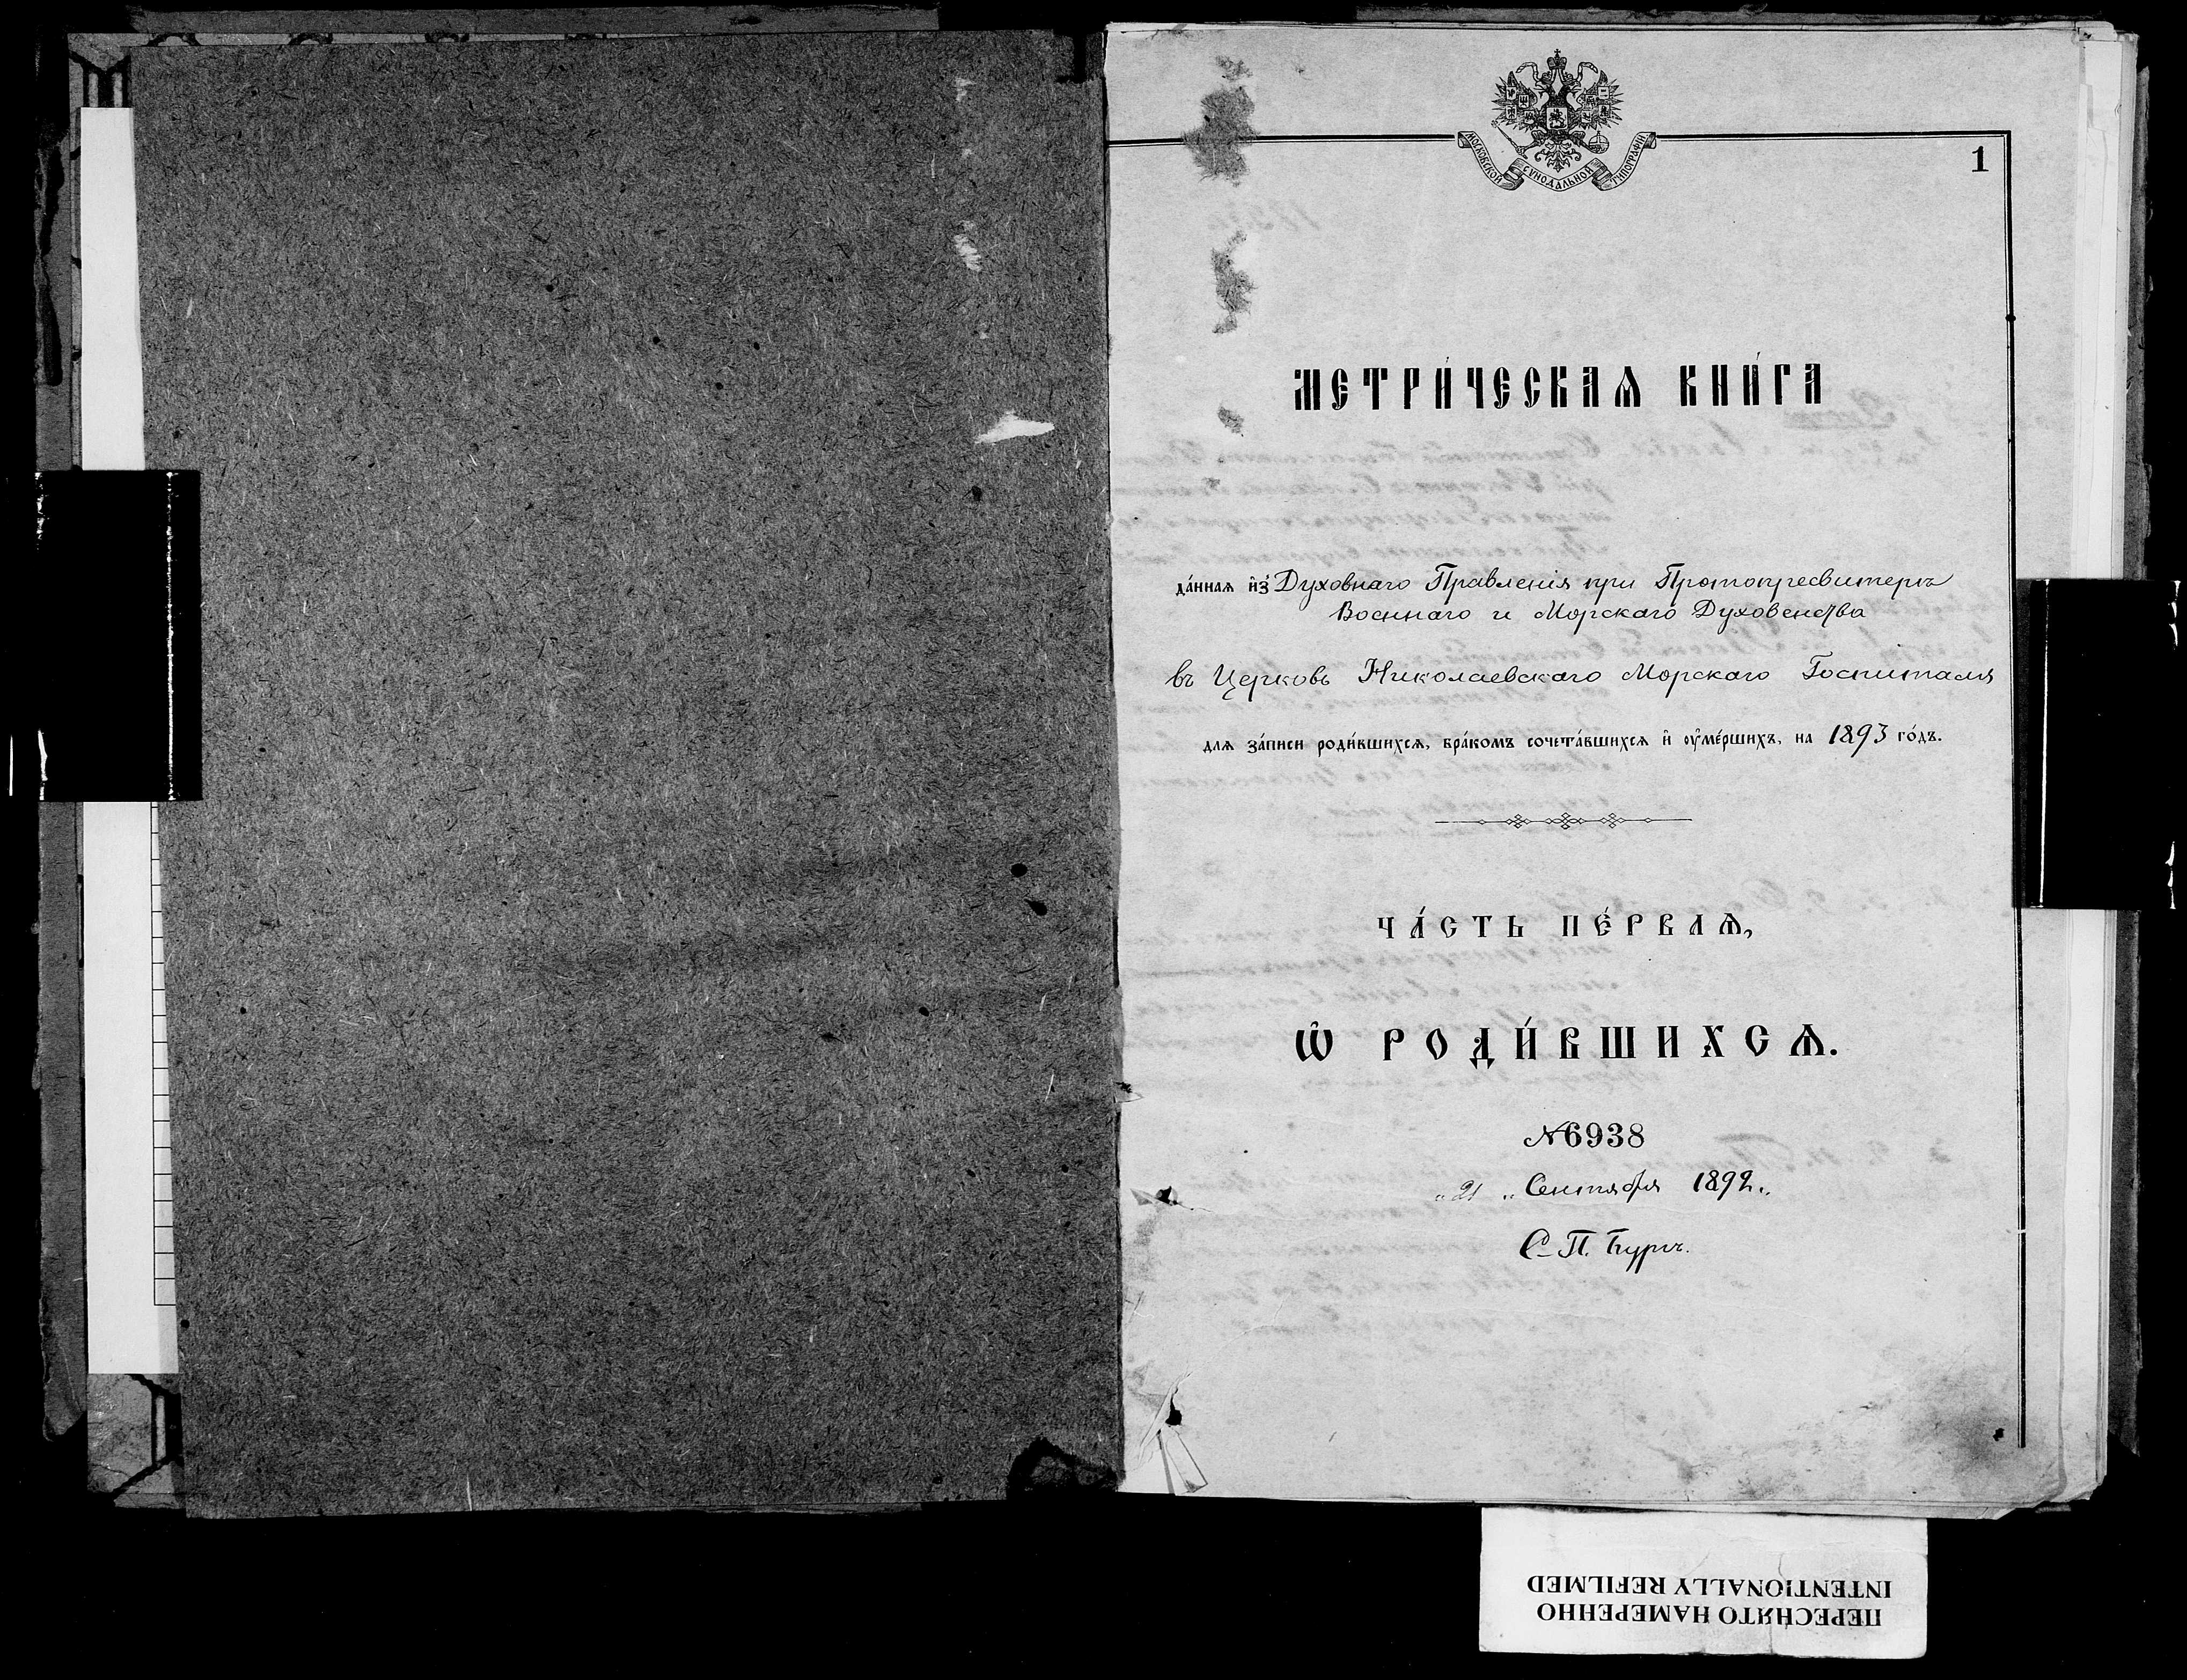 МОСКОВСКОЙ СѴНОДАЛЬНОЙ ТИПОГРАФІИ
1
МЕТРИ́ЧЕСКАѦ КНИ́ГА
да́нная и҆з̾ Духовнаго Правленія при Протопресвитерѣ
Военнаго и Морскаго Духовенства
въ Церковь Николаевскаго Морскаго Госпиталя
для за́писи роди́вшихсѧ, бра́комъ сочета́вшихсѧ и҆ ᲂу҆ме́ршихъ, на 1893 го́дъ.
ЧА́СТЬ ПЕ́РВАѦ,
Ѡ҆ РОДИ́ВШИХСѦ.
№ 6938
„ 21 „ Сентября 1892 „
С. П. Бургъ.
ПЕРЕСНЯТО НАМЕРЕННО
INTENTIONALLY REFILMED